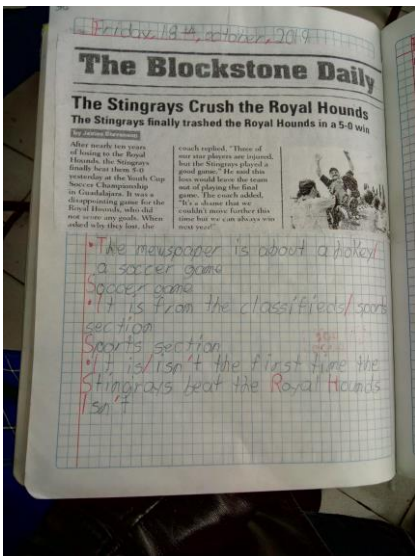 Friday, 18th, october, 2019
The Blockstone Daily
The Stingrays Crush the Royal Hounds
The Stingrays finally trashed the Royal Hounds in a 5-0 win
by James Stevenson
After nearly ten years
of losing to the Royal
Hounds, the Stingrays
finally beat them 5-0
yesterday at the Youth Cup
Soccer Championship
in Guadalajara. It was a
disappointing game for the
Royal Hounds, who did
not score any goals. When
asked why they lost, the
coach replied, "Three of
our star players are injured,
but the Stingrays played a
good game." He said this
loss would leave the team
out of playing the final
game. The coach added,
"It's a shame that we
couldn't move further this
time but we can always win
next year"
• The mewspaper is about a hokey/
a soccer game
Soccer game
• It is from the classifieds/sports
section
Sports section
• It is/isn't the first time the
Stingrays beat the Royal Hounds
Isn't